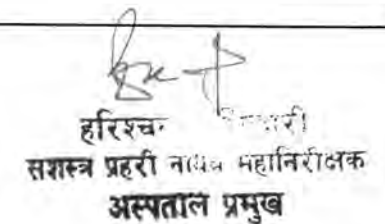 हरिश्च
सशस्त्र प्रहरी नायव महानिरीक्षक
अस्पताल प्रमुख